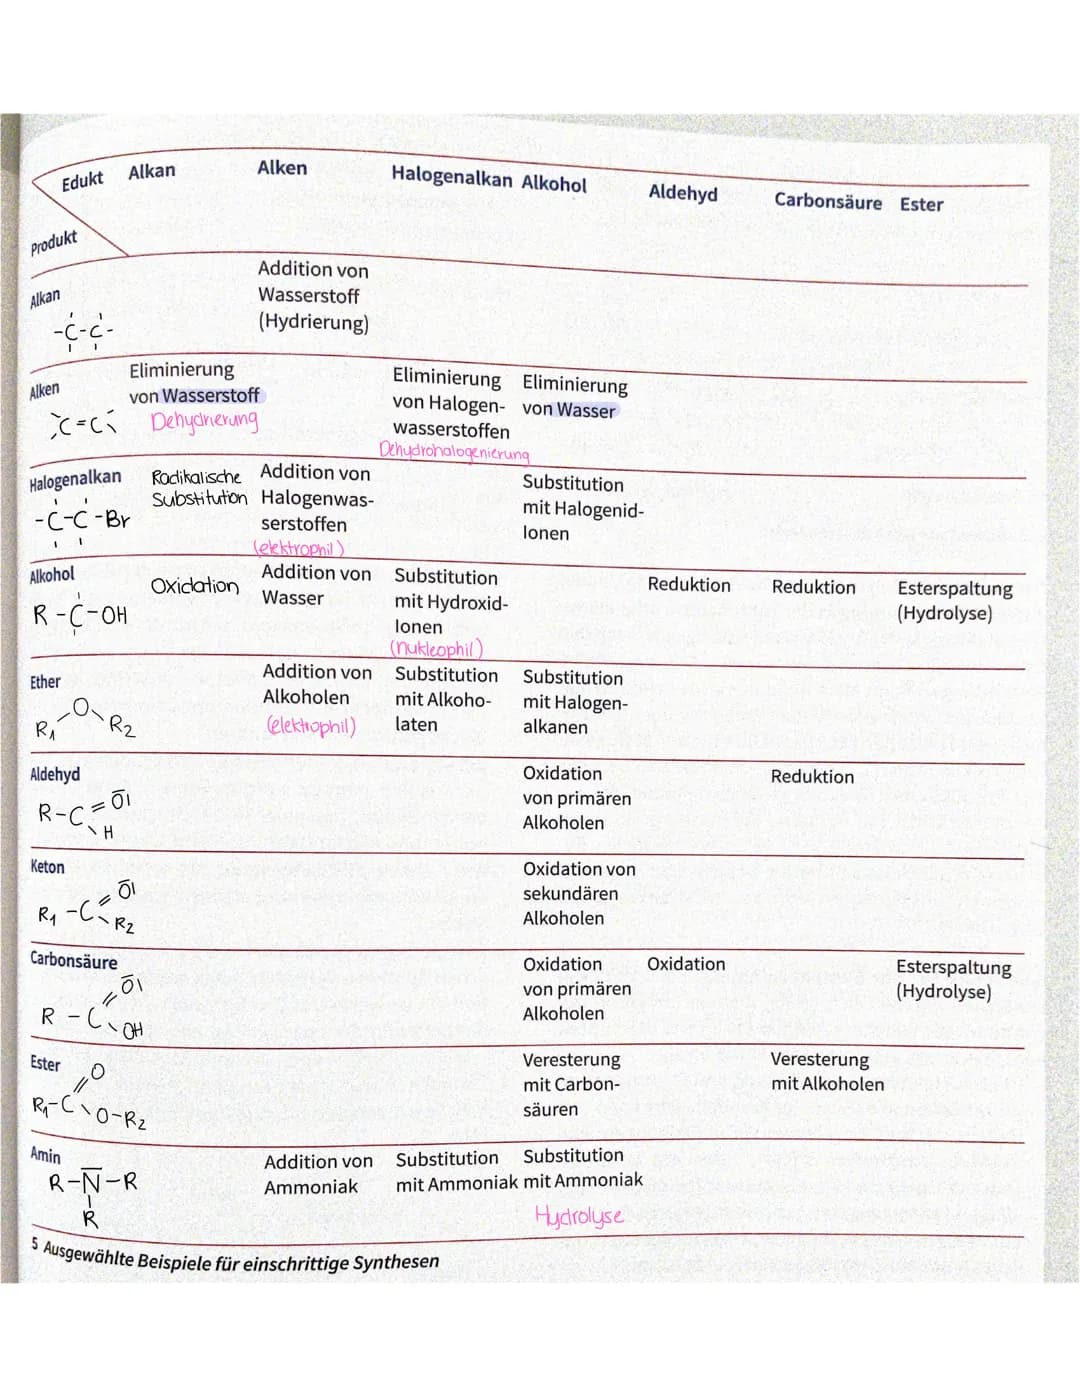 Edukt Alkan Alken Halogenalkan Alkohol Aldehyd Carbonsäure Ester
Produkt
Alkan
-C-C-
Addition von
Wasserstoff
(Hydrierung)
Alken
C=C
Eliminierung
von Wasserstoff
Dehydrierung
Eliminierung
von Halogen-
wasserstoffen
Dehydrohalogenierung
Eliminierung
von Wasser
Halogenalkan
-C-C-Br
Radikalische
Substitution
Addition von
Halogenwas-
serstoffen
(elektrophil)
Substitution
mit Halogenid-
Ionen
Alkohol
R-C-OH
Oxidation
Addition von
Wasser
Substitution
mit Hydroxid-
Ionen
(nukleophil)
Reduktion
Reduktion
Esterspaltung
(Hydrolyse)
Ether
R1-O-R2
Addition von
Alkoholen
(elektrophil)
Substitution
mit Alkoho-
laten
Substitution
mit Halogen-
alkanen
Aldehyd
R-C=O
H
Oxidation
von primären
Alkoholen
Reduktion
Keton
R1-C=O
R2
Oxidation von
sekundären
Alkoholen
Carbonsäure
R-C=O
OH
Oxidation
von primären
Alkoholen
Oxidation
Esterspaltung
(Hydrolyse)
Ester
O
R1-C
O-R2
Veresterung
mit Carbon-
säuren
Veresterung
mit Alkoholen
Amin
R-N-R
R
Addition von
Ammoniak
Substitution
mit Ammoniak
Substitution
mit Ammoniak
Hydrolyse
5 Ausgewählte Beispiele für einschrittige Synthesen